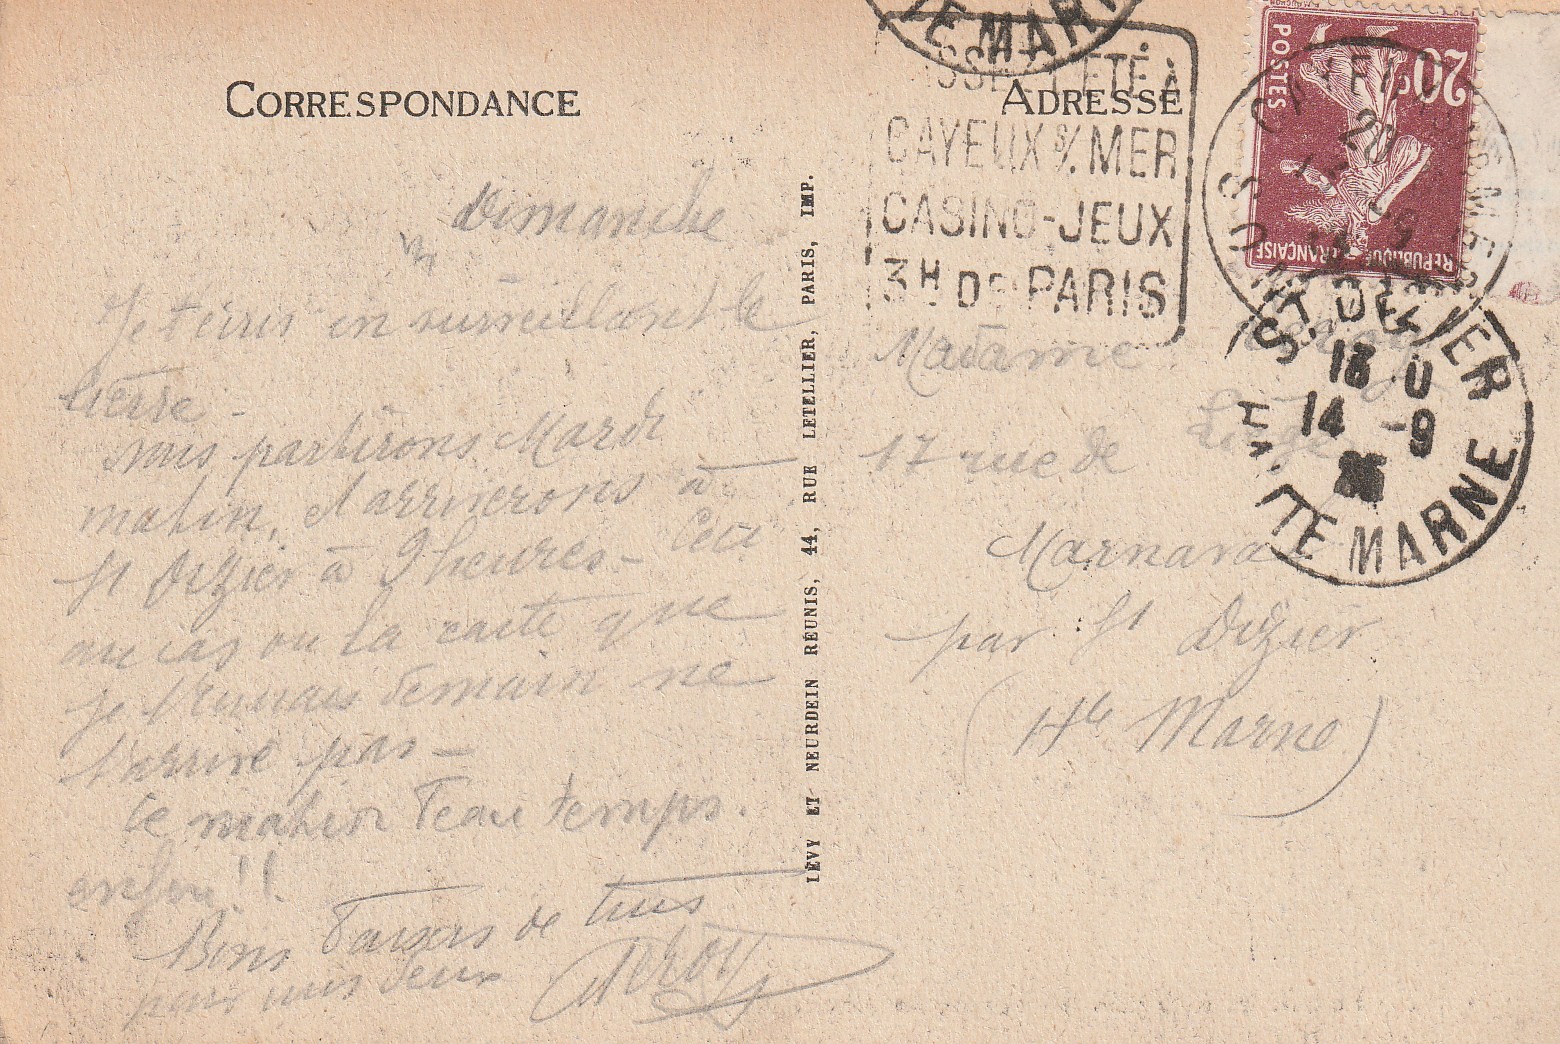 CORRESPONDANCE
Dimanche
Je t'écris en surveillant le
lierre -
nous partirons Mardi
matin, et arriverons à
St Dizier à 9 heures - Ceci
au cas ou la carte que
je t'enverrais demain ne
t'arrive pas -
Ce matin beau temps.
enfin!!
Bons Baisers de tous
pour vous deux
Leroy
LÉVY ET NEURDEIN RÉUNIS, 44, RUE LETELLIER, PARIS, IMP.
ADRESSE
TE MAR
L'ÉTÉ À
CAYEUX S/ MER
CASINO-JEUX
3H DE PARIS
POSTES
20c
REPUBLIQUE FRANÇAISE
CAYEUX
20
ST DIZIER
18 0
14 -9
HTE MARNE
Madame Leroy
17 rue de Liège
Marnaval
par St Dizier
(Hte Marne)